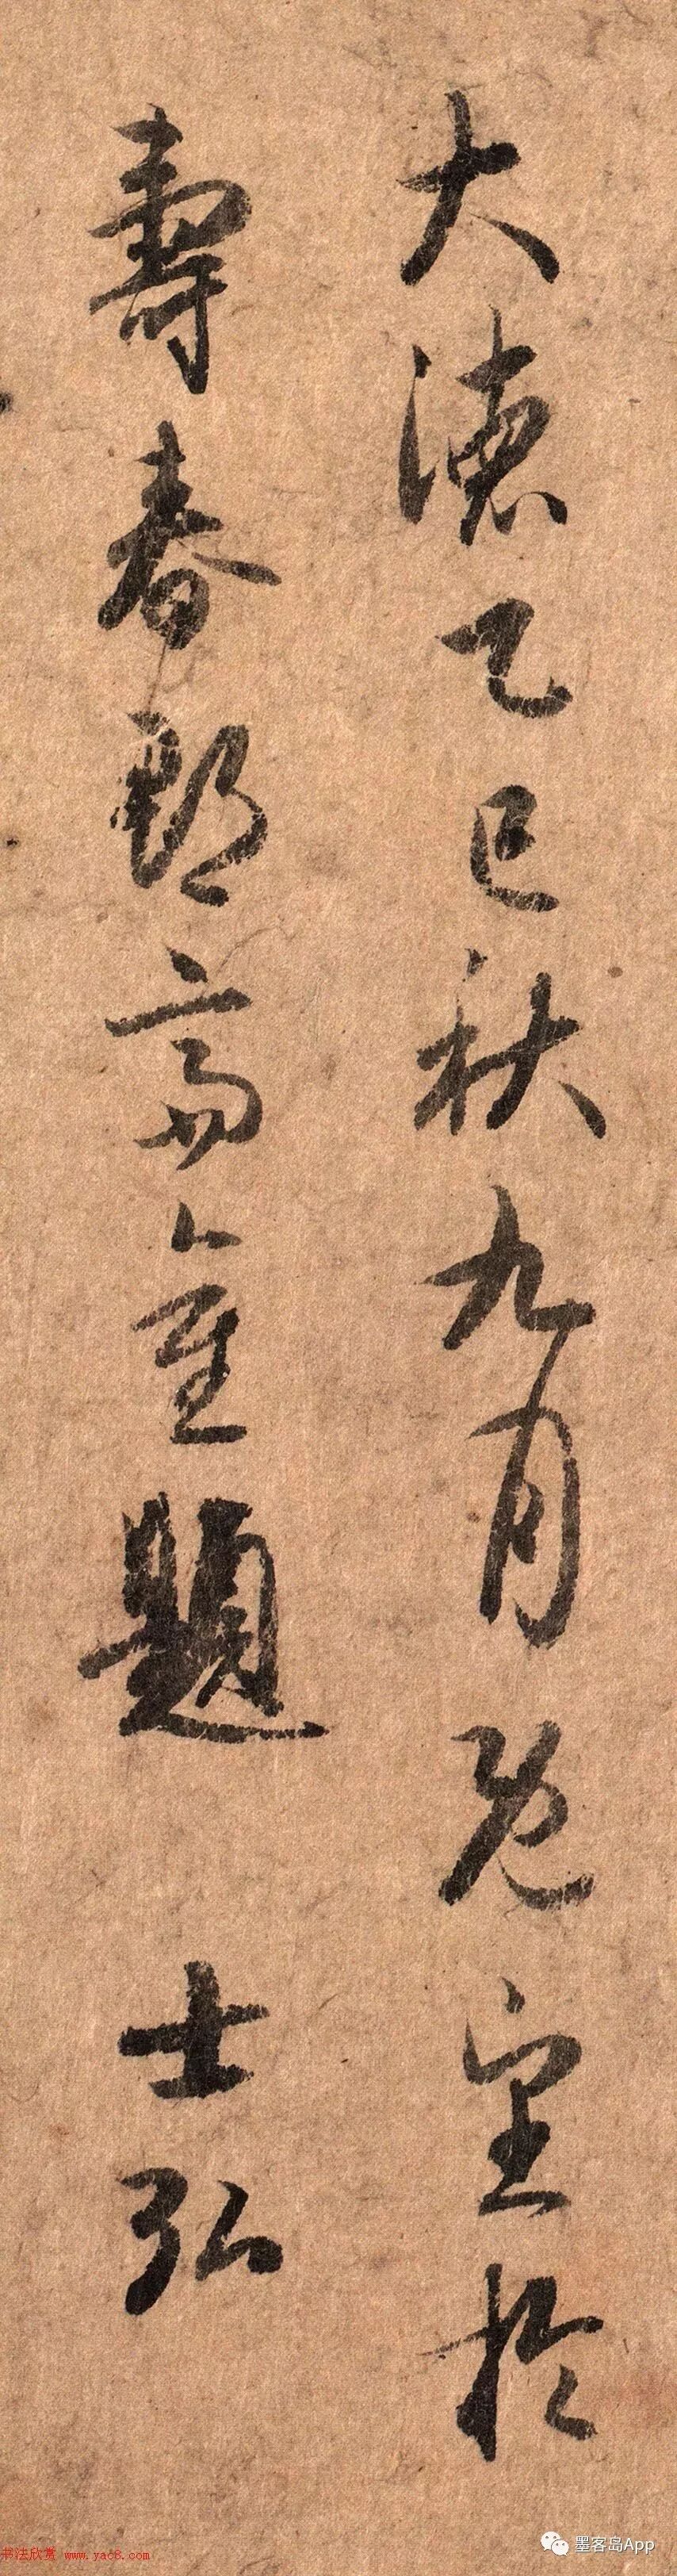 大德乙巳秋九月既望於
壽春郡齋重題 士弘
书法欣赏 www.yac8.com
墨客岛App